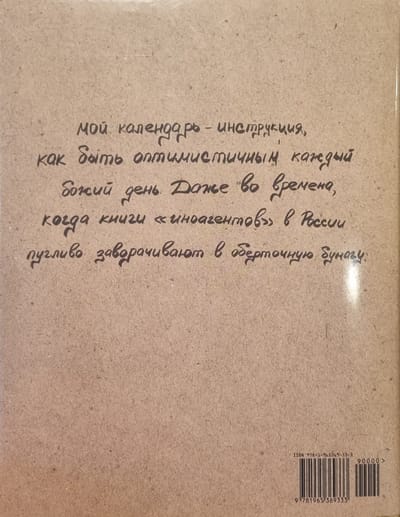 мой календарь - инструкция,
как быть оптимистичным каждый
божий день Даже во времена,
когда книги «иноагентов» в России
пугливо заворачивают в оберточную бумагу.
90000>
9 781965 369333